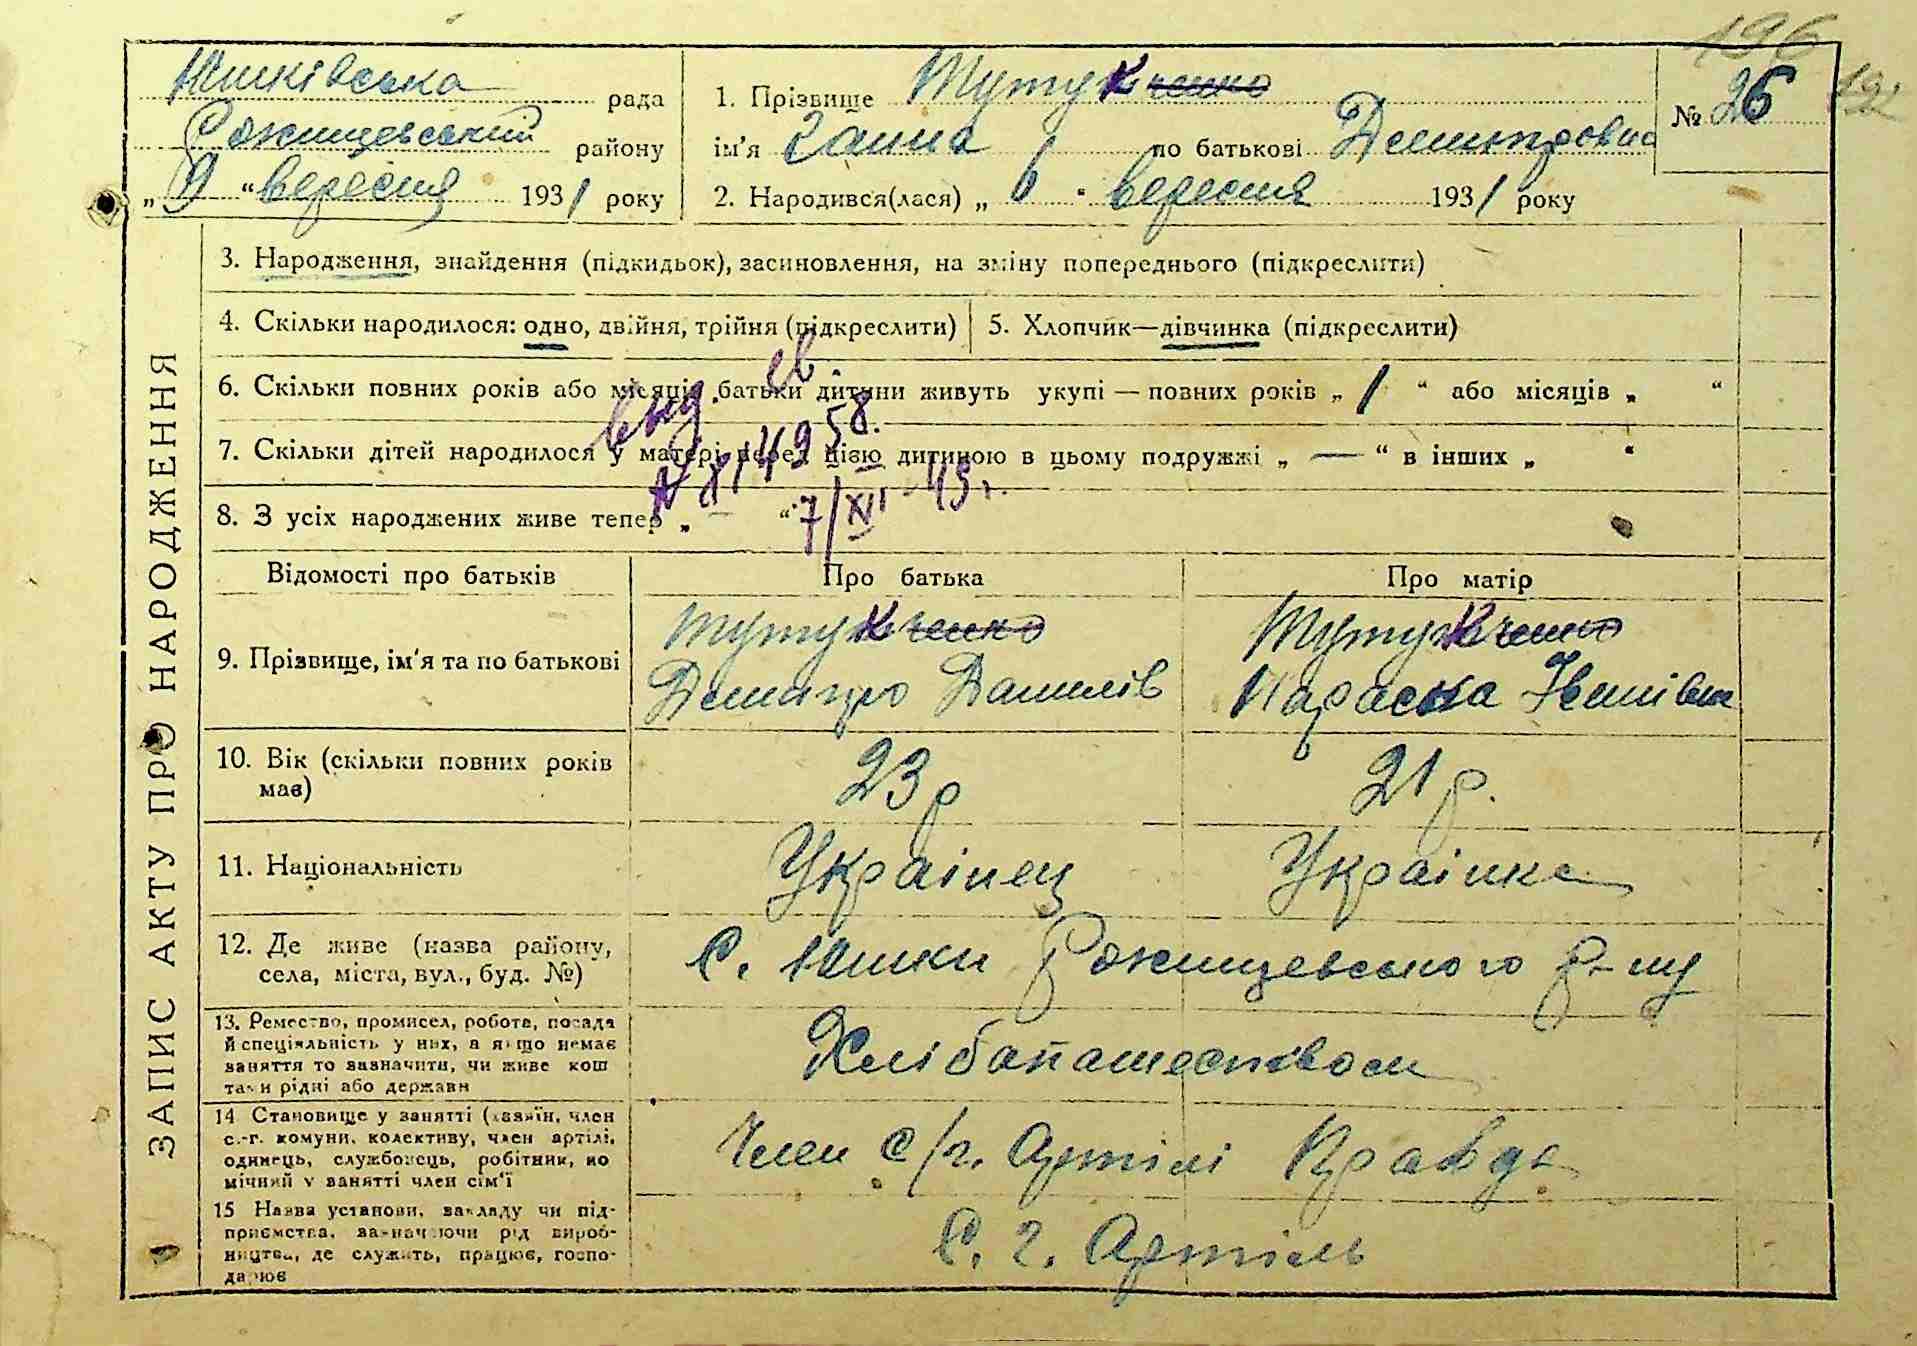 196
Юшківська рада
Рокищевський району
„ 9 “ вересня 1931 року
1. Прізвище Тутук ченко
ім'я Ганна по батькові Дмитровна
2. Народився(лася) „ 6 “ вересня 1931 року
№ 26
12
ЗАПИС АКТУ ПРО НАРОДЖЕННЯ
3. Народження, знайдення (підкидьок), засиновлення, на зміну попереднього (підкреслити)
4. Скільки народилося: одно, двійня, трійня (підкреслити)
5. Хлопчик—дівчинка (підкреслити)
6. Скільки повних років або місяців батьки дитини живуть укупі — повних років „ 1 “ або місяців „ “
7. Скільки дітей народилося у матері перед цією дитиною в цьому подружжі „ — “ в інших „ “
8. З усіх народжених живе тепер „ — “
7/XII-45г.
Відомості про батьків
Про батька
Про матір
9. Прізвище, ім'я та по батькові
Тутук ченко
Дмитро Данилів
Тутук ченко
Параска Іванівна
10. Вік (скільки повних років має)
23 р
21 р.
11. Національність
Українец
Українка
12. Де живе (назва району, села, міста, вул., буд. №)
С. Юшки Рокищевського р-ну
13. Ремество, промисел, робота, посада
й спеціяльність у них, а якщо немає
заняття то зазначити, чи живе кош
тами рідні або держави
Хлібопашеством
14 Становище у занятті (хазяїн, член
с.-г. комуни, колективу, член артілі,
одинець, службовець, робітник, по
мічний у занятті член сім'ї
Член с/г. Артілі Правда
15 Назва установи, закладу чи під-
приємства, зазначаючи рід вироб-
ництва, де служить, працює, госпо-
дарює
С. г. Артіль